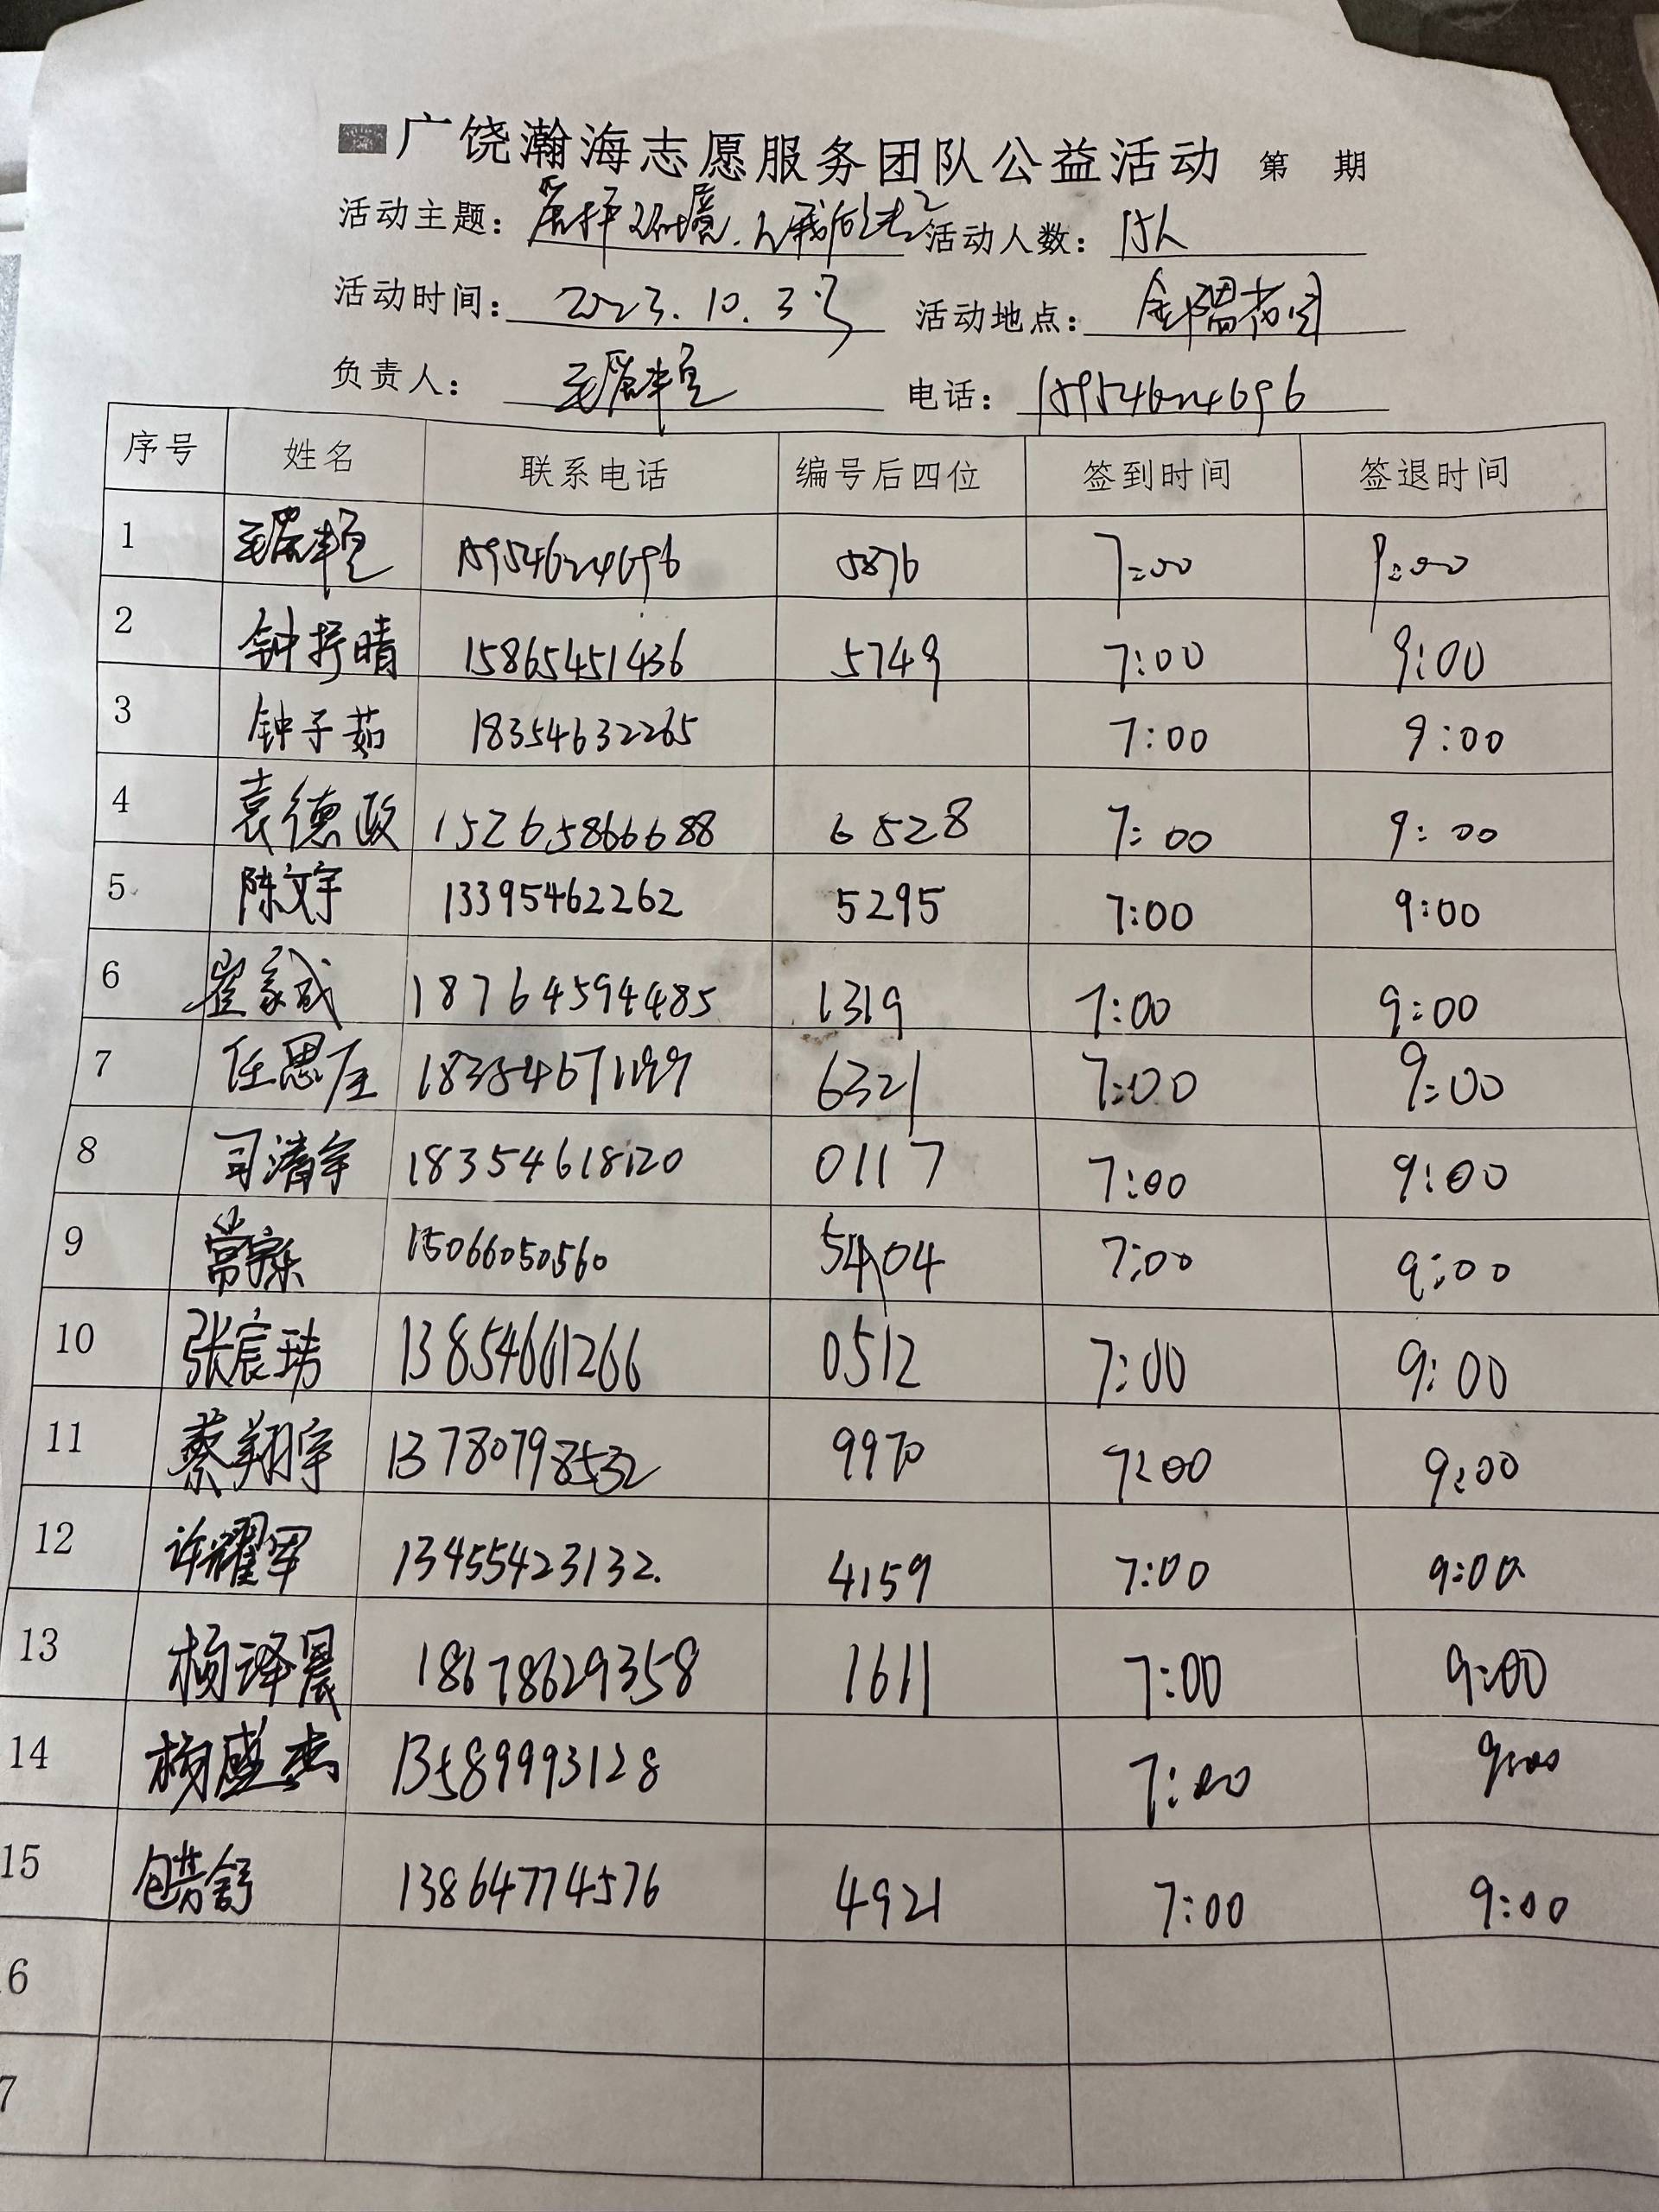 广饶瀚海志愿服务团队公益活动 第 期
活动主题: 活动人数: 15人
活动时间: 2023.10.3号 活动地点:
负责人: 电话: 18954624696
序号 姓名 联系电话 编号后四位 签到时间 签退时间
1 18954624696 5876 7:00 9:00
2 钟抒晴 15865451436 5749 7:00 9:00
3 钟子茹 18354632265 7:00 9:00
4 袁德政 15265866688 6528 7:00 9:00
5 陈文宇 13395462262 5295 7:00 9:00
6 崔家成 18764594485 1319 7:00 9:00
7 任思 6321 7:00 9:00
8 司清宇 18354618120 0117 7:00 9:00
9 15066050560 5404 7:00 9:00
10 张宸玮 13854661266 0512 7:00 9:00
11 蔡翔宇 13780798532 9970 7:00 9:00
12 许耀军 13455423132. 4159 7:00 9:00
13 杨译晨 18678629358 1611 7:00 9:00
14 杨盛杰 13589993128 7:00 9:00
15 包芸舒 13864774576 4921 7:00 9:00
6
7